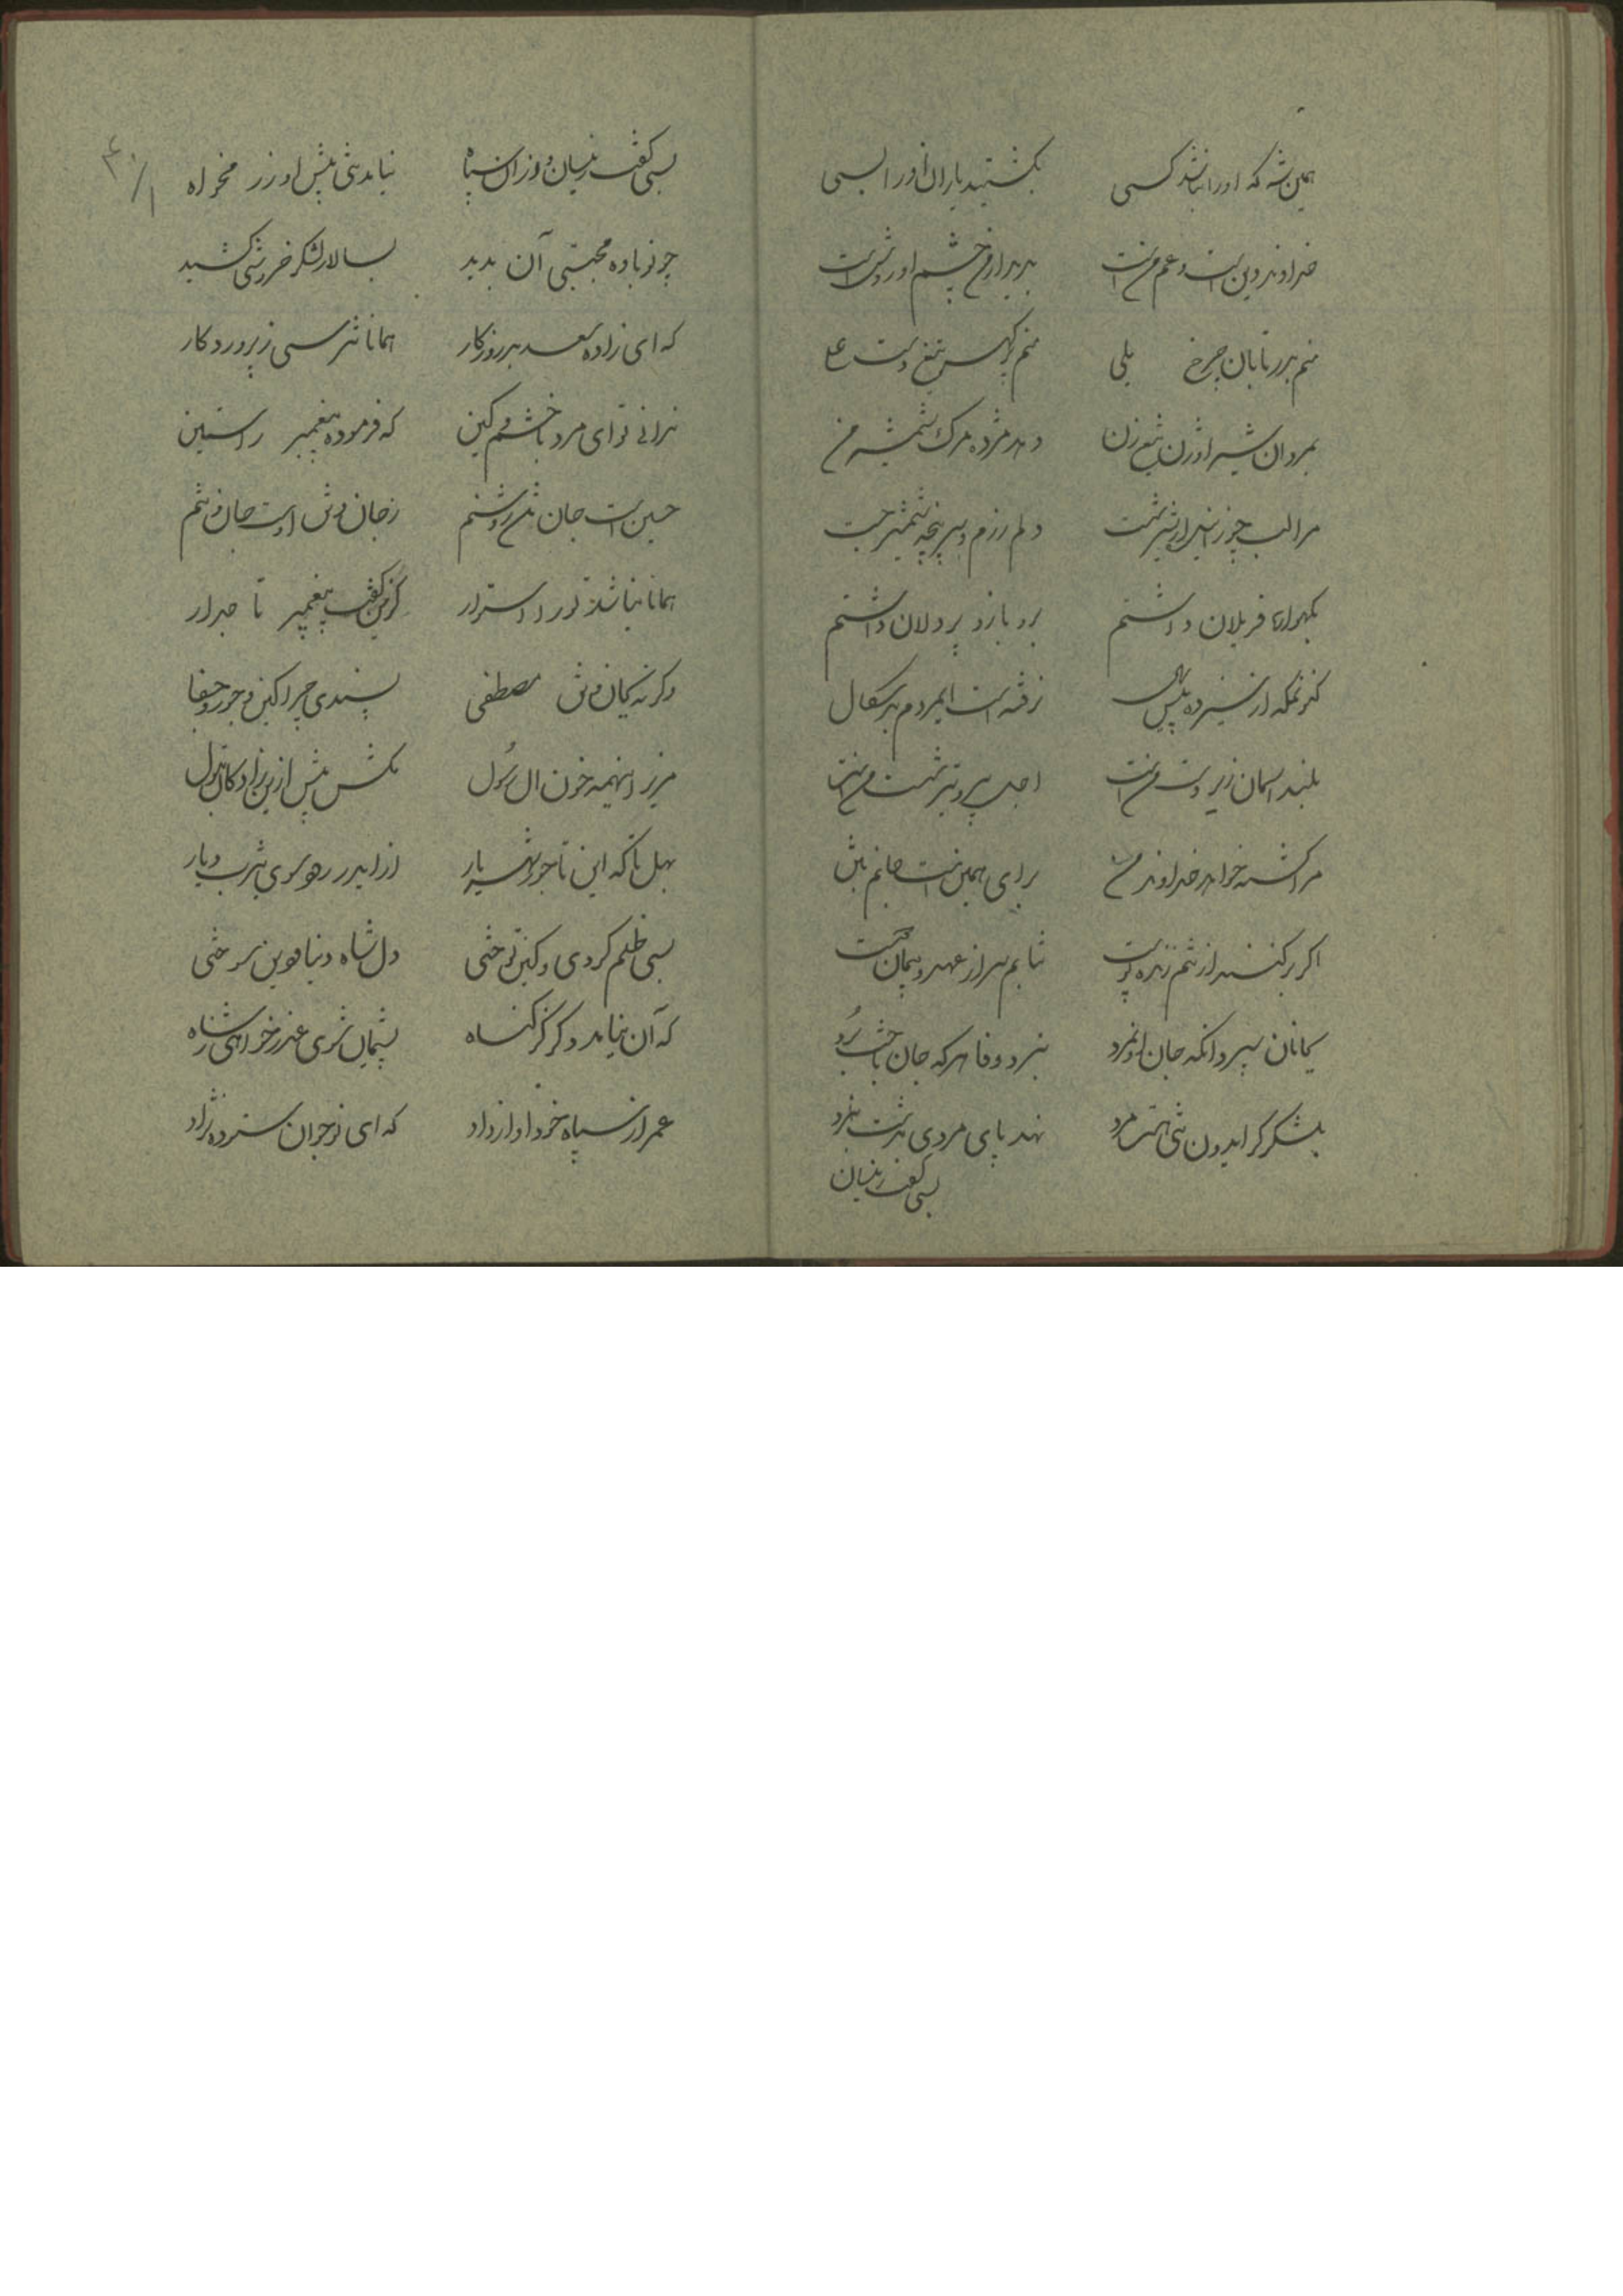 همین شه که او را نباشد کسی بکشتید یاران او را بسی
خداوند دین است و عم من است بدیدار من چشم او روشن است
منم بدر تابان چرخ یلی منم تیغ دست علی
بمردان شیر اوژن تیغ زن دهد مژده مرگ شمشیر من
مرا لب چو از شیر شست دلم رزم و سرپنجه شمشیر جست
یلان داشتم بر و بازو پردلان داشتم
کنونم که از سیزده سال نرفته است ایمردم بدسگال
بلند اسمان زیر دست من است اجل پیرو تیر شست من است
مرا کشته خواهد خداوند من برای همین است جانم بتن
اگر برکنند از تنم زنده پوست نتابم سر از عهد و پیمان دوست
سپرد انکه جان او نمرد نبرد وفا هر که جان
بلشکر گر ایدون تنی هست مرد نهد پای مردی بدشت نبرد
بسی گفت زینسان
بسی گفت زینسان و زان سپاه نیامد تنی پیش او رزمخواه
چو نوباوه مجتبی آن بدید بسالار لشکر خروشی کشید
که ای زاده سعد بد روزگار همانا نترسی ز پروردگار
ندانی تو ای مرد با خشم و کین که فرموده پیغمبر راستین
حسین است جان تن روشنم ز جان من است او و جان تنم
همانا نباشد تو را استوار کزین گفت پیغمبر تاجدار
وگرنه بجان و تن مصطفی پسندی چرا کین و جور و جفا
مریز اینهمه خون ال رسول مکش بیش ازین زادگان بتول
بهل تا که این تاجور شهریار از ایدر رود سوی یثرب دیار
بسی ظلم کردی و کین توختی دل شاه دنیا و دین سوختی
که آن بیامد و گر گناه پشیمان شوی عذر خواهی ز شاه
عمر از سپاه خود اواز داد که ای نوجوان ستوده نژاد